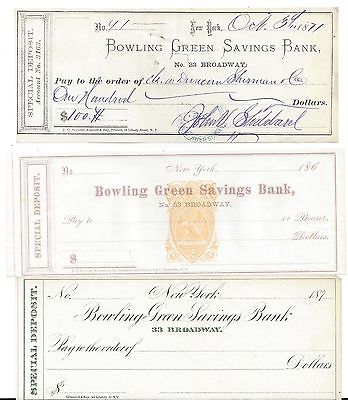 SPECIAL DEPOSIT.
No. 41 New York, Oct. 3d 1871
BOWLING GREEN SAVINGS BANK,
No. 33 BROADWAY,
Pay to the order of Duncan Sherman & Co
One Hundred Dollars.
$100
SPECIAL DEPOSIT.
No. New York, 186
Bowling Green Savings Bank,
No. 33 BROADWAY.
Pay to or Bearer,
Dollars.
$
SPECIAL DEPOSIT.
No. New York 187
Bowling Green Savings Bank
33 BROADWAY.
Pay to the order of
Dollars
$